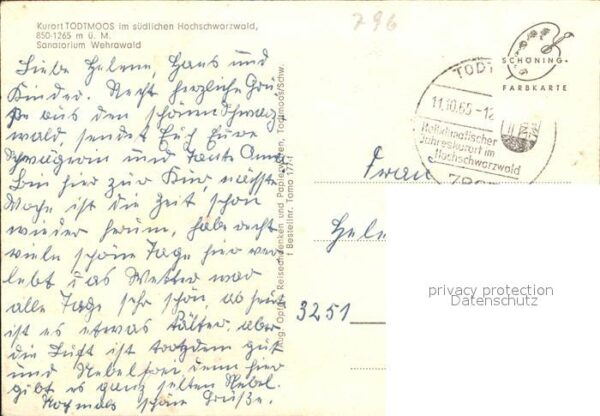 Kurort TODTMOOS im südlichen Hochschwarzwald,
850-1265 m ü. M.
Sanatorium Wehrawald
796
SCHÖNING-
FARBKARTE
TODT
11.10.65-12
Heilklimatischer
Jahreskurort im
Hochschwarzwald
Liebe Helene, Hans und
Kinder. Recht herzliche Grü
ße aus dem schönen Schwarz
wald, sendet Euch Eure
Schwägerin und Tante Anna
Bin hier zur Kur, nächste
Woche ist die Zeit schon
wieder herum, habe recht
viele schöne Tage hier ver
lebt das Wetter war
alle Tage sehr schön, ab heut
ist es etwas kälter aber
die Luft ist trotzdem gut
und Nebelfrei denn hier
gibt es ganz selten Nebel.
Nochmals schöne Grüße.
Reiseandenken und Papierwaren, Todtmoos/Schw.
Bestellnr. Tomo 177
Frau
Hele
3251
privacy protection
Datenschutz